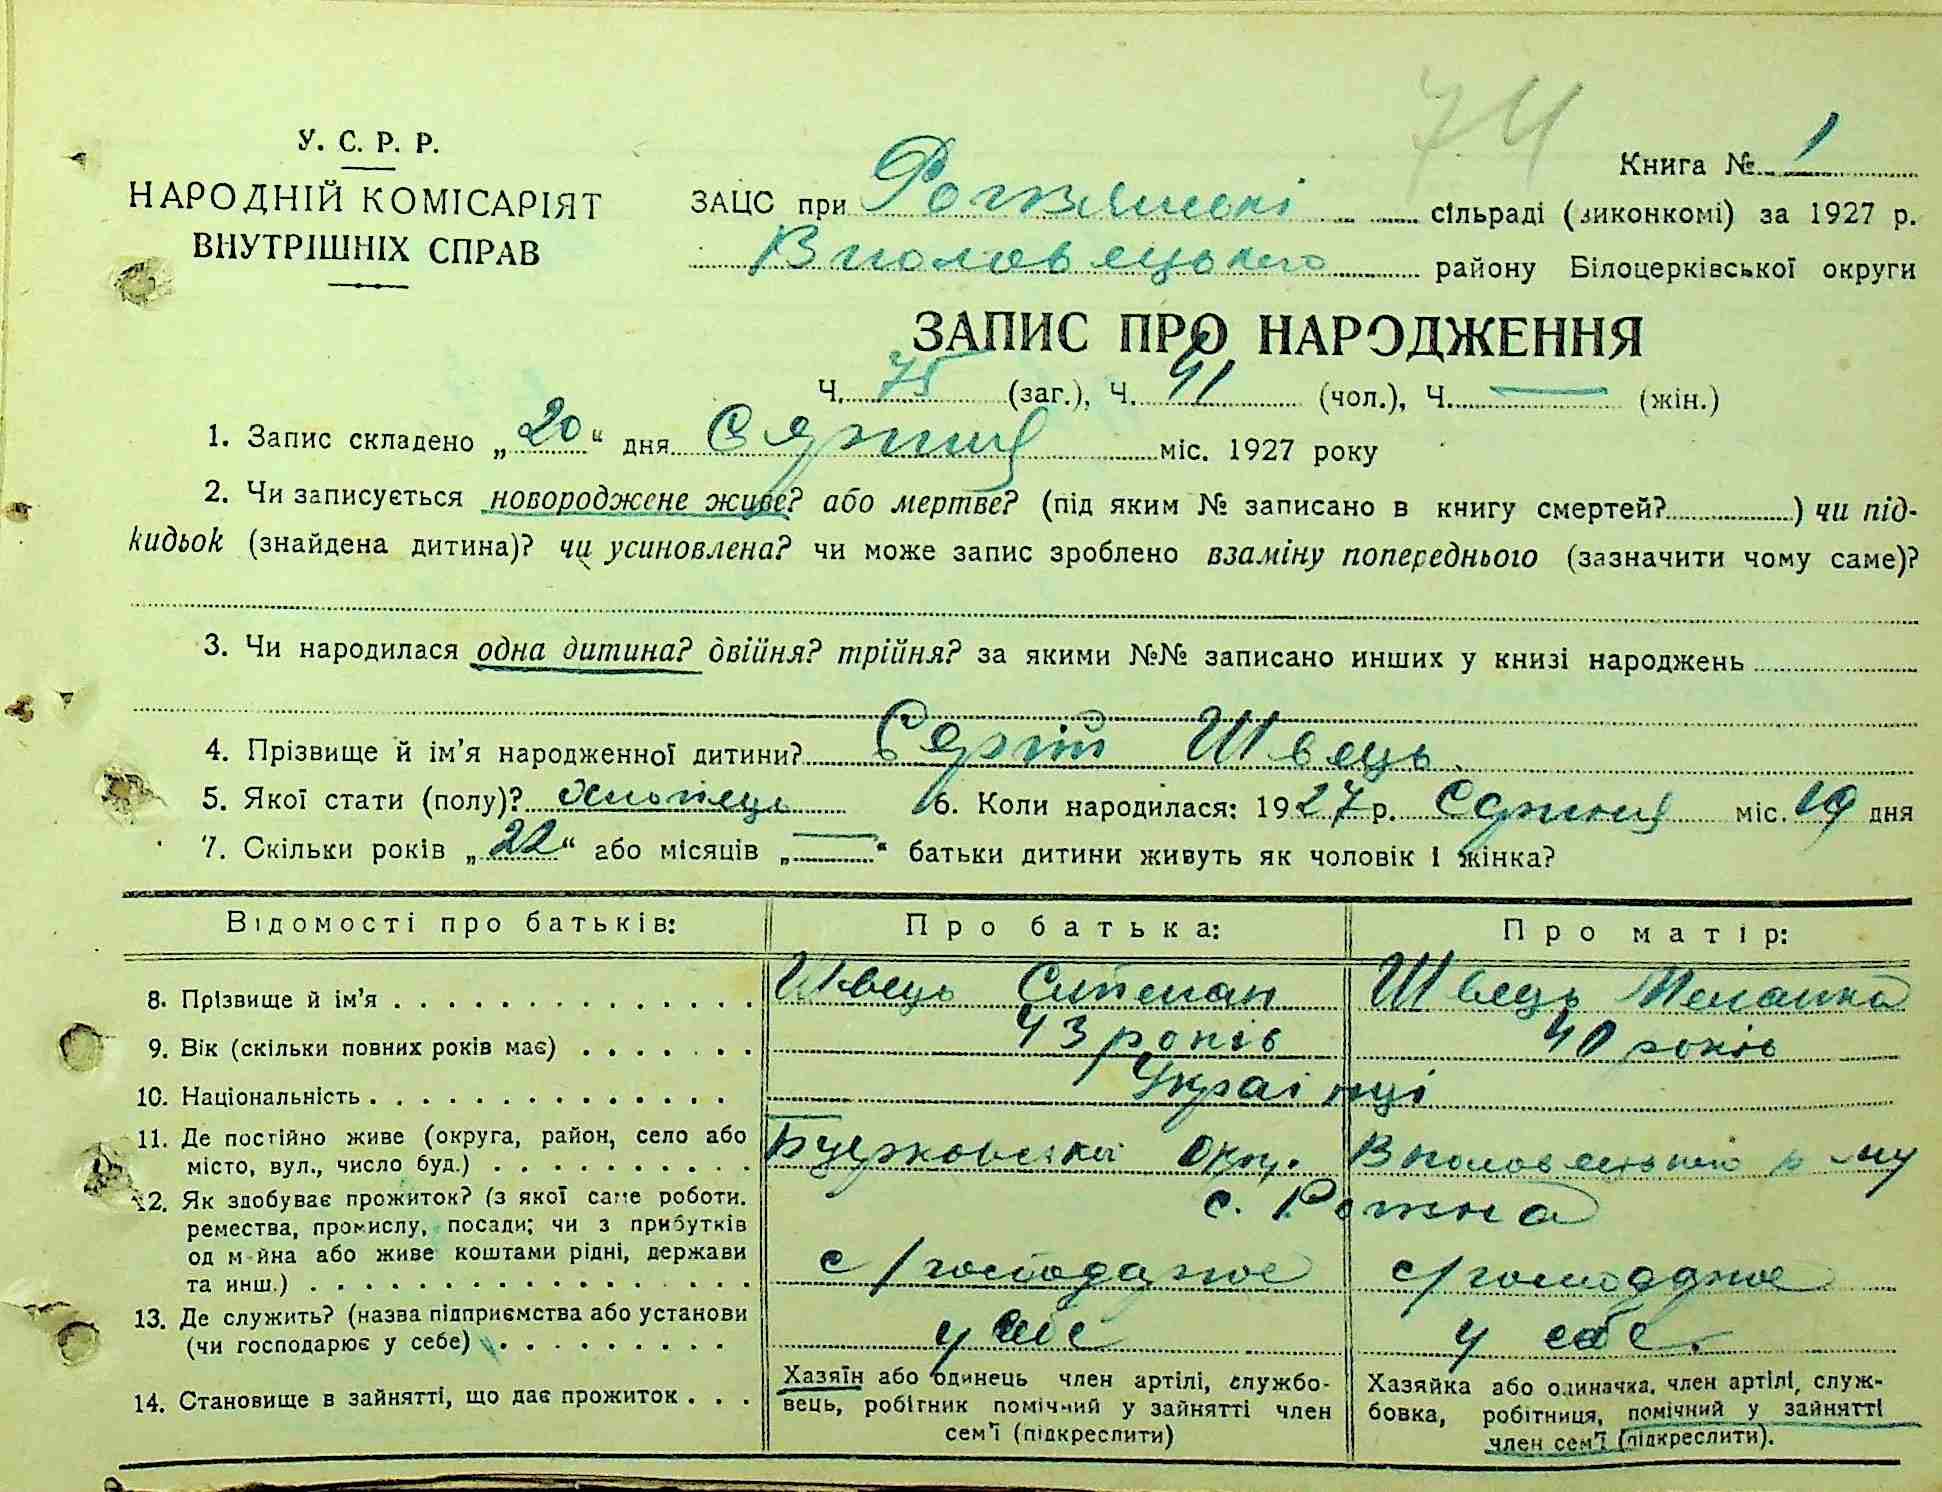 74
У. С. Р. Р.
НАРОДНІЙ КОМІСАРІЯТ
ВНУТРІШНІХ СПРАВ
Книга № 1
ЗАЦС при сільраді (виконкомі) за 1927 р.
району Білоцерківської округи
ЗАПИС ПРО НАРОДЖЕННЯ
Ч. 75 (заг.), Ч. 41 (чол.), Ч. — (жін.)
1. Запис складено „20“ дня Серпня міс. 1927 року
2. Чи записується новороджене живе? або мертве? (під яким № записано в книгу смертей?) чи під-
кидьок (знайдена дитина)? чи усиновлена? чи може запис зроблено взаміну попереднього (зазначити чому саме)?
3. Чи народилася одна дитина? двійня? трійня? за якими №№ записано инших у книзі народжень
4. Прізвище й ім’я народженної дитини? Сергій Швець
5. Якої стати (полу)? хлопець 6. Коли народилася: 1927 р. Серпня міс. 19 дня
7. Скільки років „22“ або місяців „—“ батьки дитини живуть як чоловік і жінка?
Відомості про батьків: Про батька: Про матір:
8. Прізвище й ім’я Швець Степан Швець Меланка
9. Вік (скільки повних років має) 43 років 40 років
10. Національність Українці
11. Де постійно живе (округа, район, село або
місто, вул., число буд.) Бцерковської окр. р-ну
с. Рожна
12. Як здобуває прожиток? (з якої саме роботи,
ремества, промислу, посади; чи з прибутків
од майна або живе коштами рідні, держави
та инш.) с/господарює с/господарює
13. Де служить? (назва підприємства або установи
(чи господарює у себе) у себе у себе.
14. Становище в зайнятті, що дає прожиток
Хазяїн або одинець член артілі, службо-
вець, робітник помічний у зайнятті член
сем’ї (підкреслити)
Хазяйка або одиначка, член артілі, служ-
бовка, робітниця, помічний у зайнятті
член сем’ї (підкреслити).